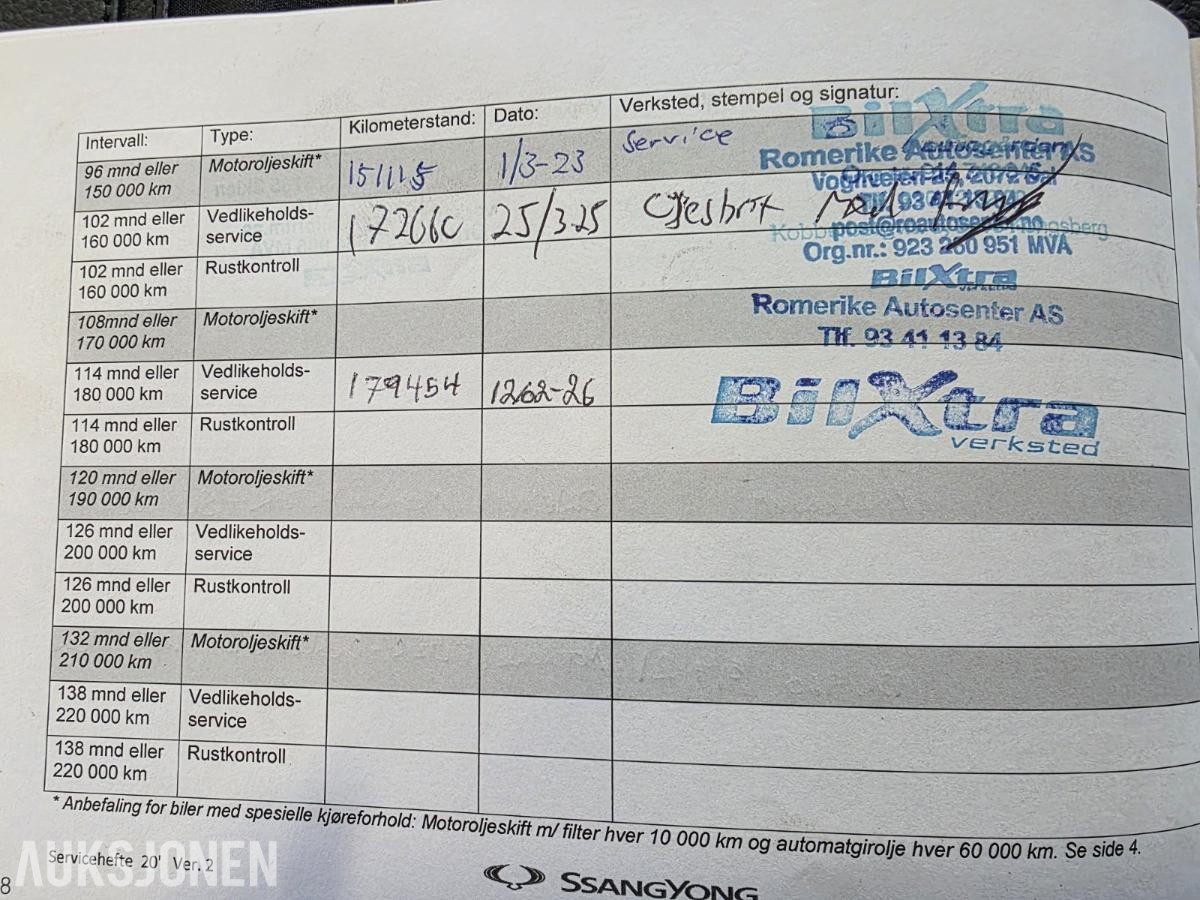 Intervall: Type: Kilometerstand: Dato: Verksted, stempel og signatur:
96 mnd eller Motoroljeskift* 151115 1/3-23 Service
150 000 km
BilXtra
Romerike Autosenter AS
102 mnd eller Vedlikeholds- 25/3.25
160 000 km service
post@roautosenter.no
Org.nr.: 923 260 951 MVA
102 mnd eller Rustkontroll
160 000 km
BilXtra
108mnd eller Motoroljeskift*
170 000 km
Romerike Autosenter AS
Tlf. 93 41 13 84
114 mnd eller Vedlikeholds- 179454 1262-26
180 000 km service
BilXtra
verksted
114 mnd eller Rustkontroll
180 000 km
120 mnd eller Motoroljeskift*
190 000 km
126 mnd eller Vedlikeholds-
200 000 km service
126 mnd eller Rustkontroll
200 000 km
132 mnd eller Motoroljeskift*
210 000 km
138 mnd eller Vedlikeholds-
220 000 km service
138 mnd eller Rustkontroll
220 000 km
* Anbefaling for biler med spesielle kjøreforhold: Motoroljeskift m/ filter hver 10 000 km og automatgirolje hver 60 000 km. Se side 4.
Servicehefte 20' Ver. 2
AUKSJONEN
8
SSANGYONG